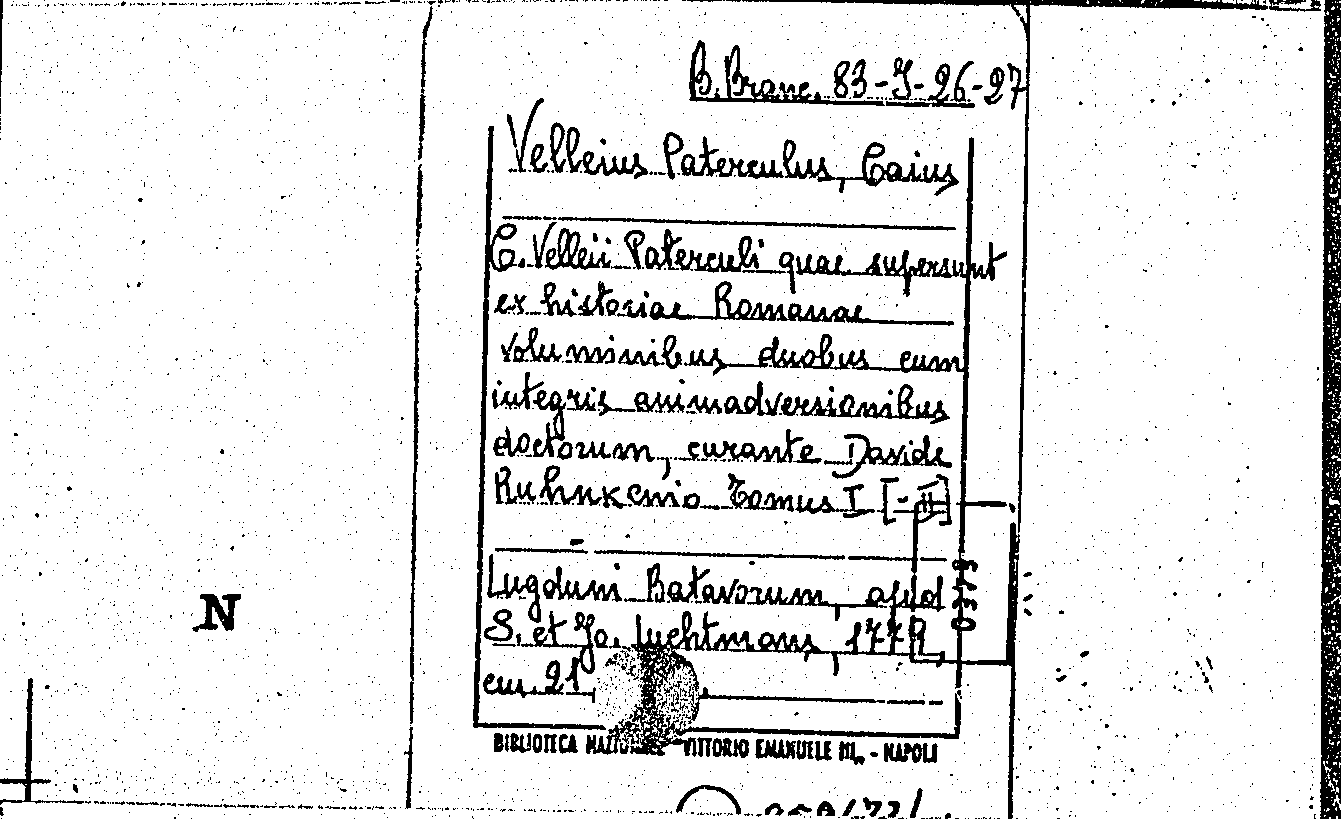 B. Branc. 83-J-26-27
Velleius Paterculus, Caius
C. Velleii Paterculi quae supersunt
ex historiae Romanae
voluminibus duobus cum
integris animadversionibus
doctorum, curante Davide
Ruhnkenio Tomus I [-II]
Lugduni Batavorum, apud
S. et Jo. Luchtmans, 1779
cm. 21
0373
N
BIBLIOTECA NAZIONALE VITTORIO EMANUELE III. - NAPOLI